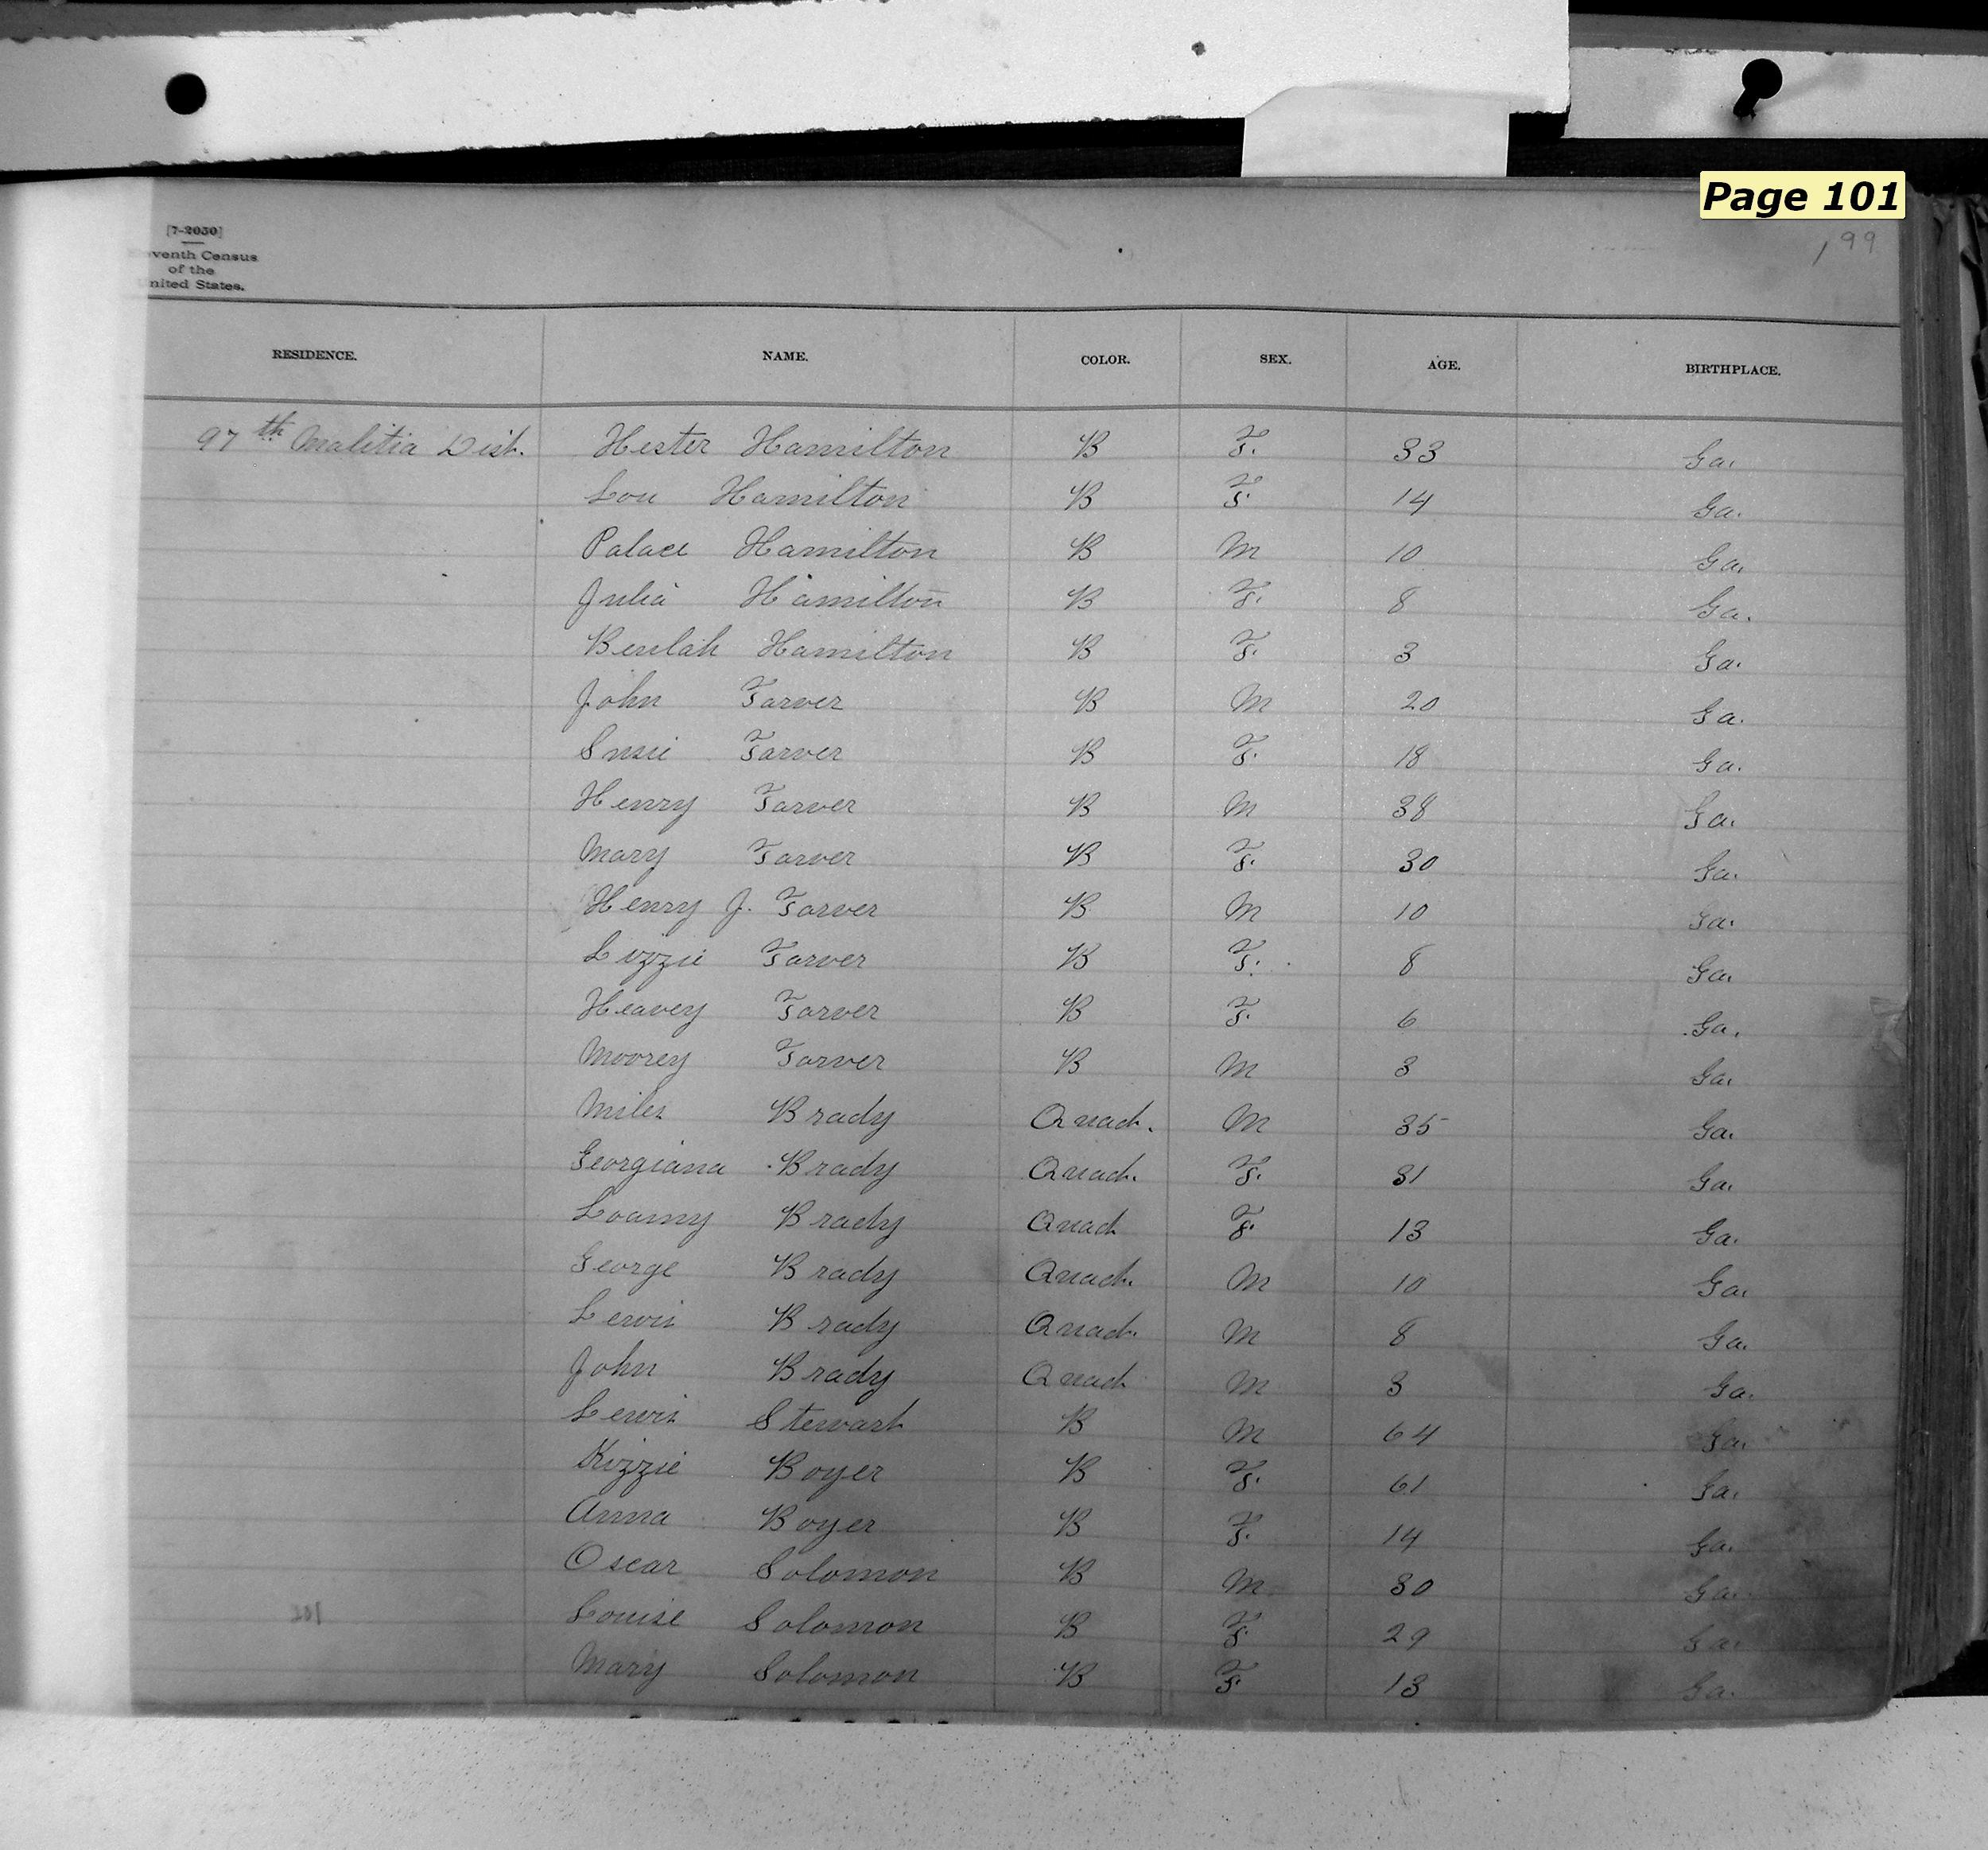 Page 101
199
[7-2050]
eventh Census
of the
United States.
RESIDENCE. NAME. COLOR. SEX. AGE. BIRTHPLACE.
97th Malitia Dist. Hester Hamilton B F. 33 Ga.
Lou Hamilton B F. 14 Ga.
Palace Hamilton B M 10 Ga.
Julia Hamilton B F. 8 Ga.
Beulah Hamilton B F. 3 Ga.
John Tarver B M 20 Ga.
Susie Tarver B F. 18 Ga.
Henry Tarver B M 38 Ga.
Mary Tarver B F. 30 Ga.
Henry J. Tarver B M 10 Ga.
Lizzie Tarver B F. 8 Ga.
Heavey Tarver B F. 6 Ga.
Moorey Tarver B M 3 Ga.
Miles Brady Quad. M 35 Ga.
Georgiana Brady Quad. F. 31 Ga.
Loamy Brady Quad F. 13 Ga.
George Brady Quad. M 10 Ga.
Lewis Brady Quad. M 8 Ga.
John Brady Quad M 3 Ga.
Lewis Stewart B M 64 Ga.
Kizzie Boyer B F. 61 Ga.
Anna Boyer B F. 14 Ga.
Oscar Solomon B M 30 Ga.
Louise Solomon B F. 29 Ga.
Mary Solomon B F. 13 Ga.